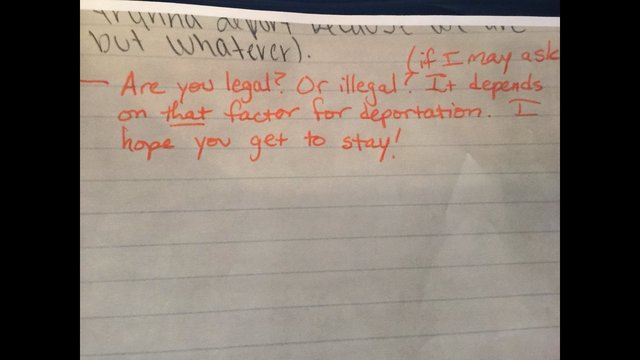 but whatever).
(if I may ask
— Are you legal? Or illegal? It depends
on that factor for deportation. I
hope you get to stay!